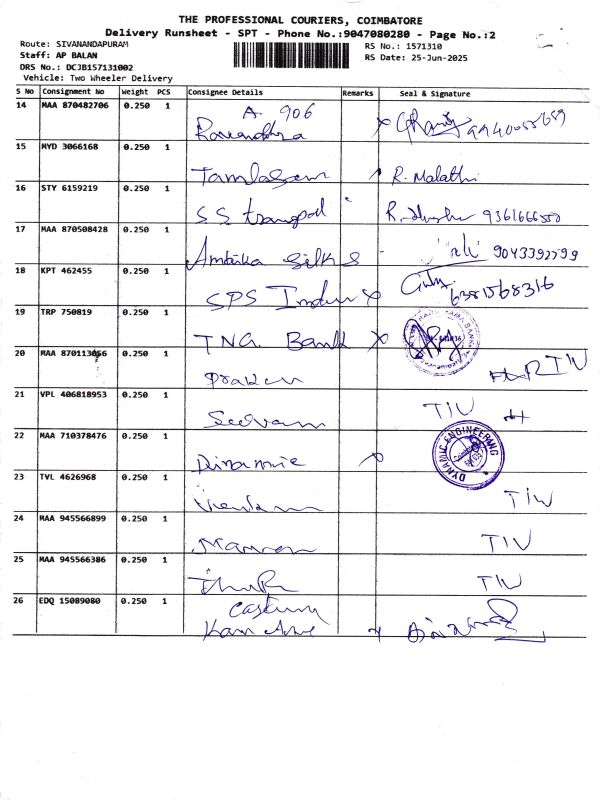 THE PROFESSIONAL COURIERS, COIMBATORE
Delivery Runsheet - SPT - Phone No.:9047080280 - Page No.:2
Route: SIVANANDAPURAM
Staff: AP BALAN
DRS No.: DCJB157131002
Vehicle: Two Wheeler Delivery
RS No.: 1571310
RS Date: 25-Jun-2025
S No Consignment No Weight PCS Consignee Details Remarks Seal & Signature
14 MAA 870482706 0.250 1 A. 906
Ravendhra
15 MYD 3066168 0.250 1
R. Malathi
16 STY 6159219 0.250 1
S S transpol 9361666550
17 MAA 870508428 0.250 1
Ambika Silks 9043392799
18 KPT 462455 0.250 1
SPS 6381568316
19 TRP 750819 0.250 1
TNG. Bank
20 MAA 870113056 0.250 1 TIW
21 VPL 406818953 0.250 1 TIW
22 MAA 710378476 0.250 1 DYNAMIC ENGINEERING
23 TVL 4626968 0.250 1
TIW
24 MAA 945566899 0.250 1
TIW
25 MAA 945566386 0.250 1
TIW
26 EDQ 15089080 0.250 1